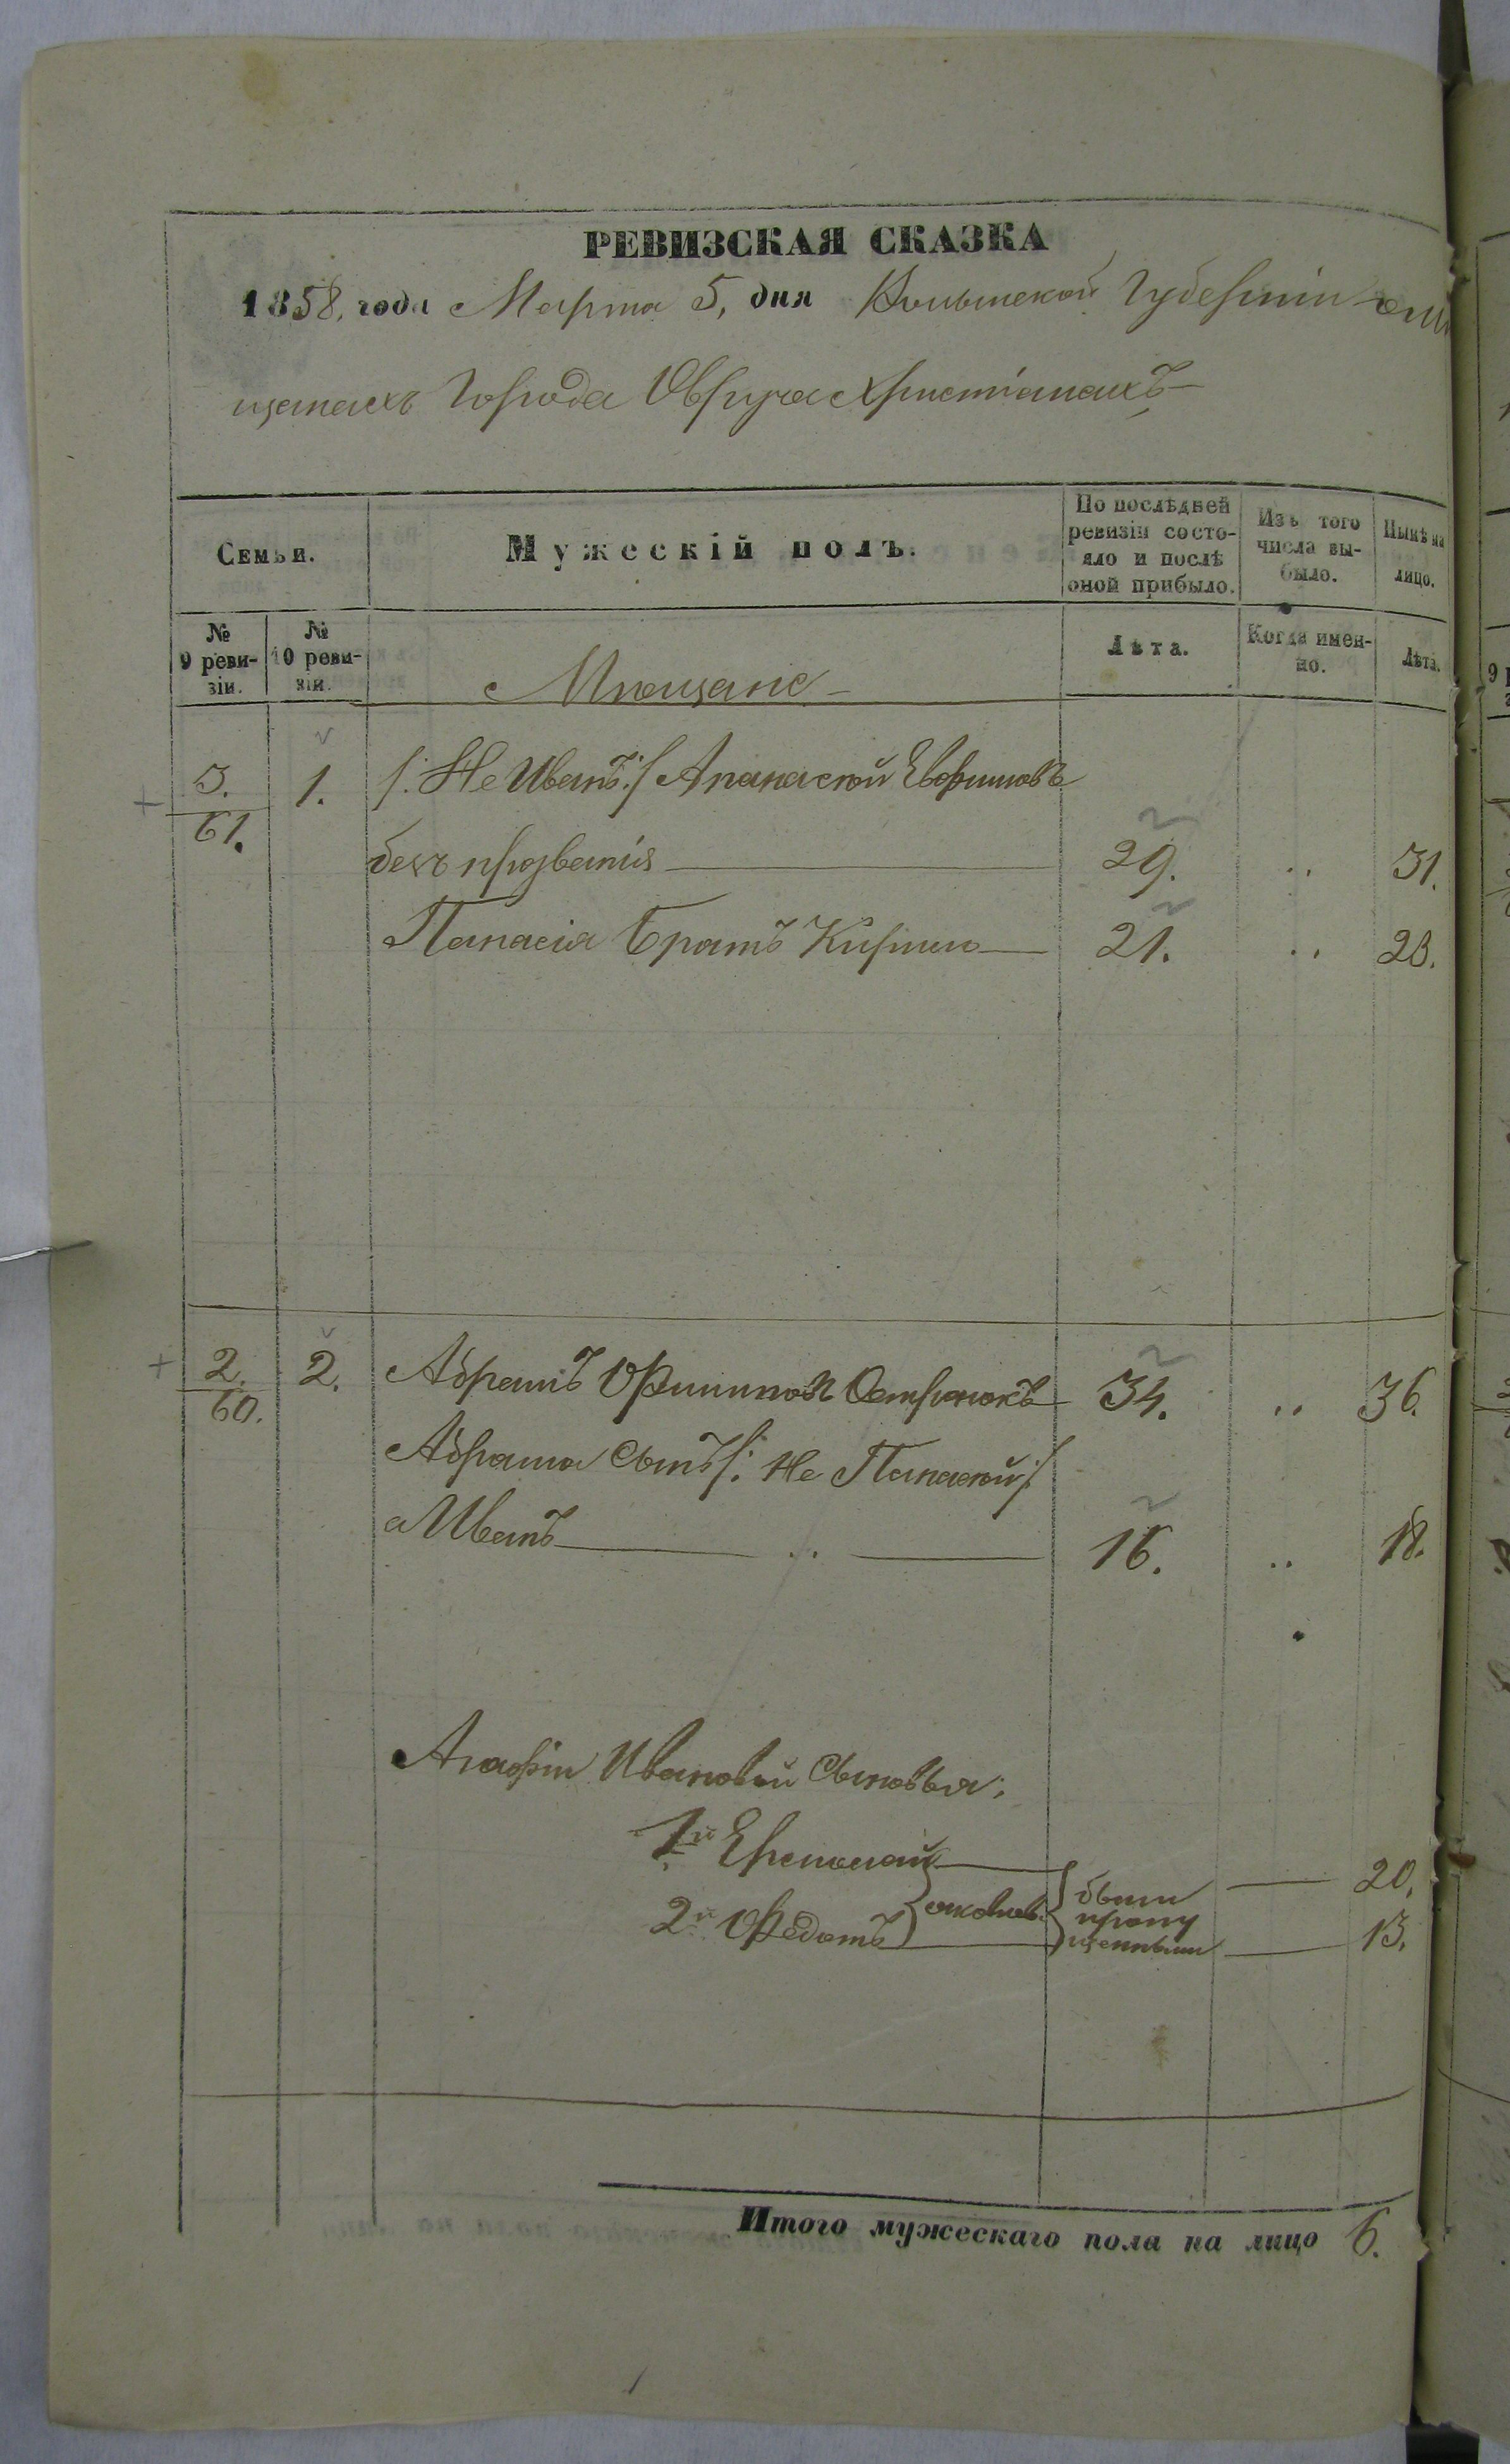 РЕВИЗСКАЯ СКАЗКА
1858, года Марта 5, дня Волынской Губерніи о мѣ
щанахъ Города Овруча Христіанахъ
Семьи.
Мужескій полъ.
По послѣдней ревизіи состо-
яло и послѣ
оной прибыло.
Изъ того
числа вы-
было.
Нынѣ на
лицо.
№
9 реви-
зіи.
№
10 реви-
зіи.
Мѣщане
Лѣта.
Когда имен-
но.
Лѣта.
3.
61.
1.
/: Не Иванъ :/ Апанасий Евфимовъ
безъ прозванія 29. 31.
Панасія Братъ Кирило 21. 23.
2.
60.
2.
Абрамъ Филиповъ 34. 36.
Абрама Сынъ /: Не Панасий :/
а Иванъ 16. 18.
Агафіи Ивановой Сыновья:
1й 20,
2й Федотъ 13.
были
пропу
щенными
Итого мужескаго пола на лицо 6.